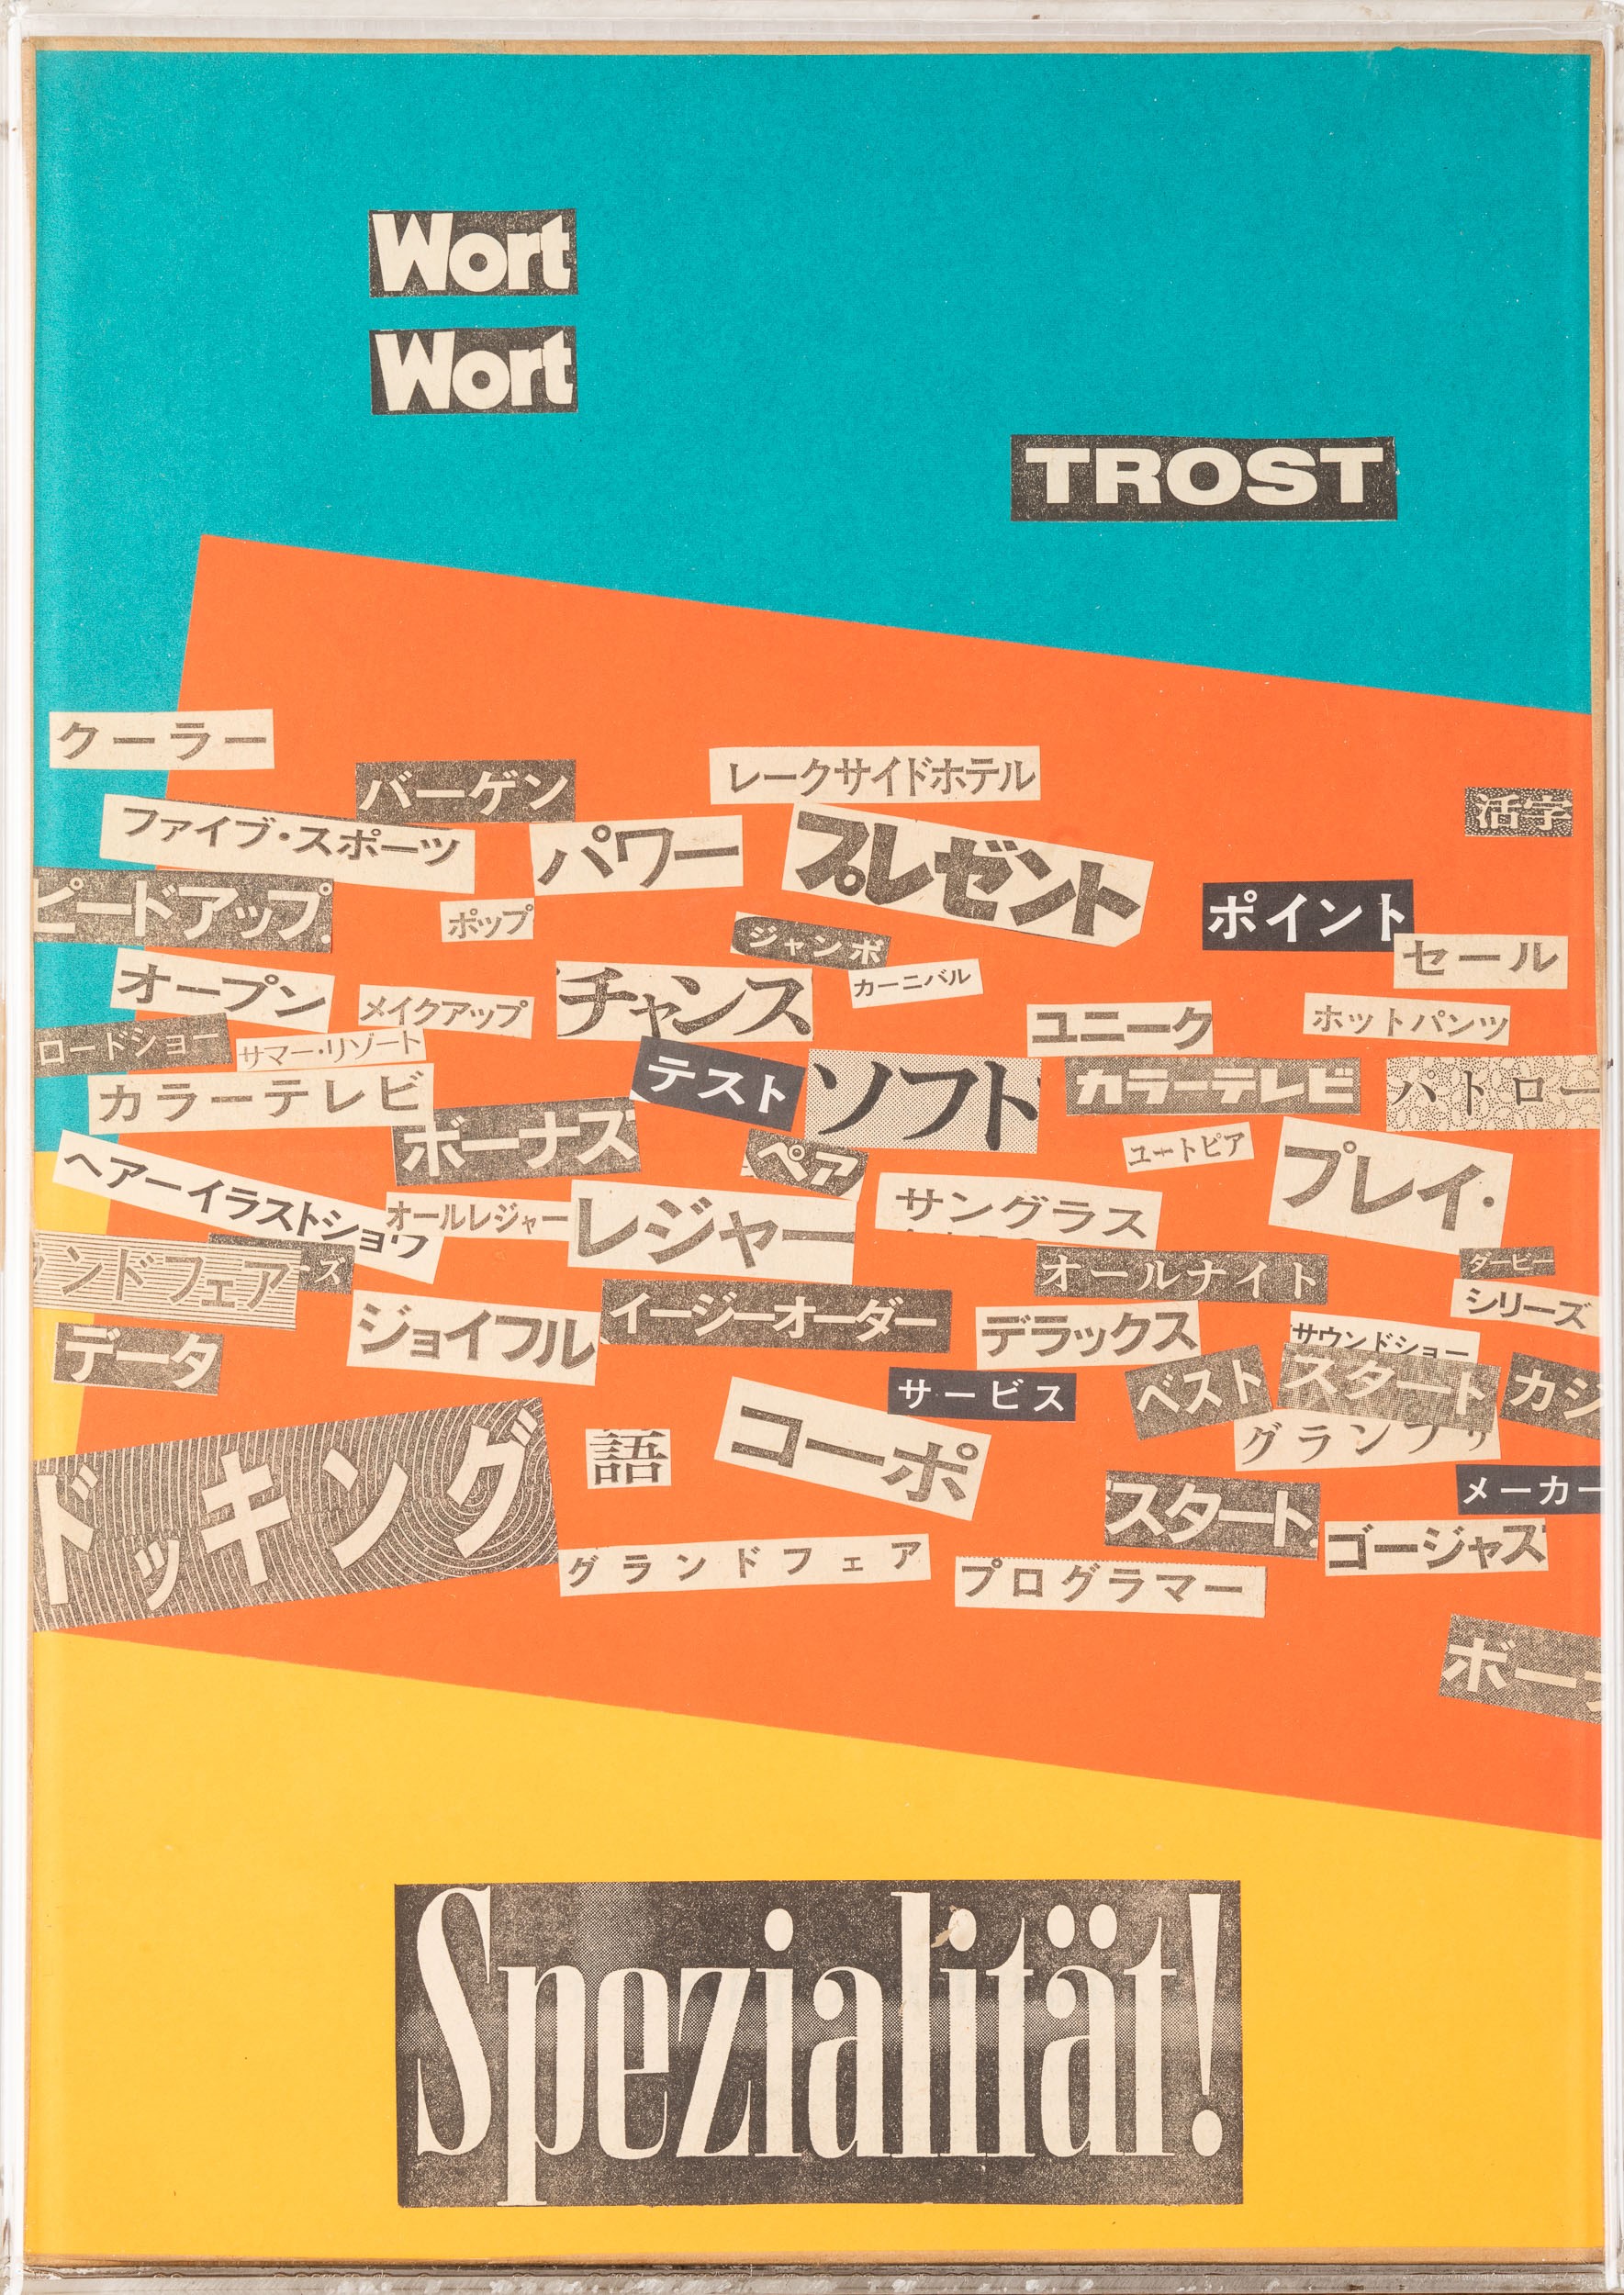 Wort
Wort
TROST
クーラー
バーゲン
レークサイドホテル
活字
ファイブ・スポーツ
パワー
プレゼント
ピードアップ
ポップ
ポイント
ジャンボ
セール
オープン
メイクアップ
チャンス
カーニバル
ユニーク
ホットパンツ
ロードショー
サマー・リゾート
テスト
ソフト
カラーテレビ
パトロー
カラーテレビ
ボーナス
ペア
ユートピア
プレイ・
ヘアーイラストショウ
オールレジャー
レジャー
サングラス
ンドフェア
ーズ
オールナイト
ダービー
シリーズ
データ
ジョイフル
イージーオーダー
デラックス
サウンドショー
サービス
ベスト
スタート
カジ
グランプリ
ドッキング
語
コーポ
スタート
メーカー
ゴージャス
グランドフェア
プログラマー
ボー
Spezialität!